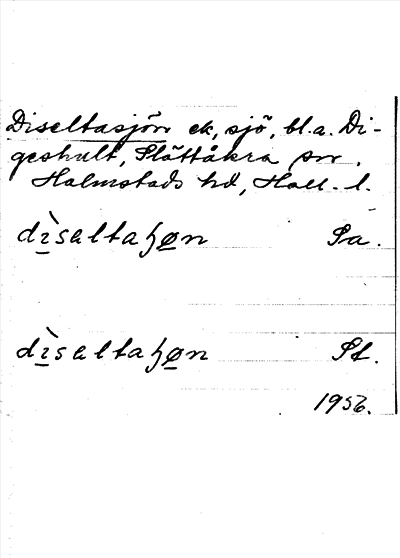 Diseltasjön ek, sjö, bl.a. Di-
geshult, Slättåkra sn.
Halmstads hd, Hall. l.
dìsəltaɧøn Sa.
dìsəltaɧøn St.
1956.